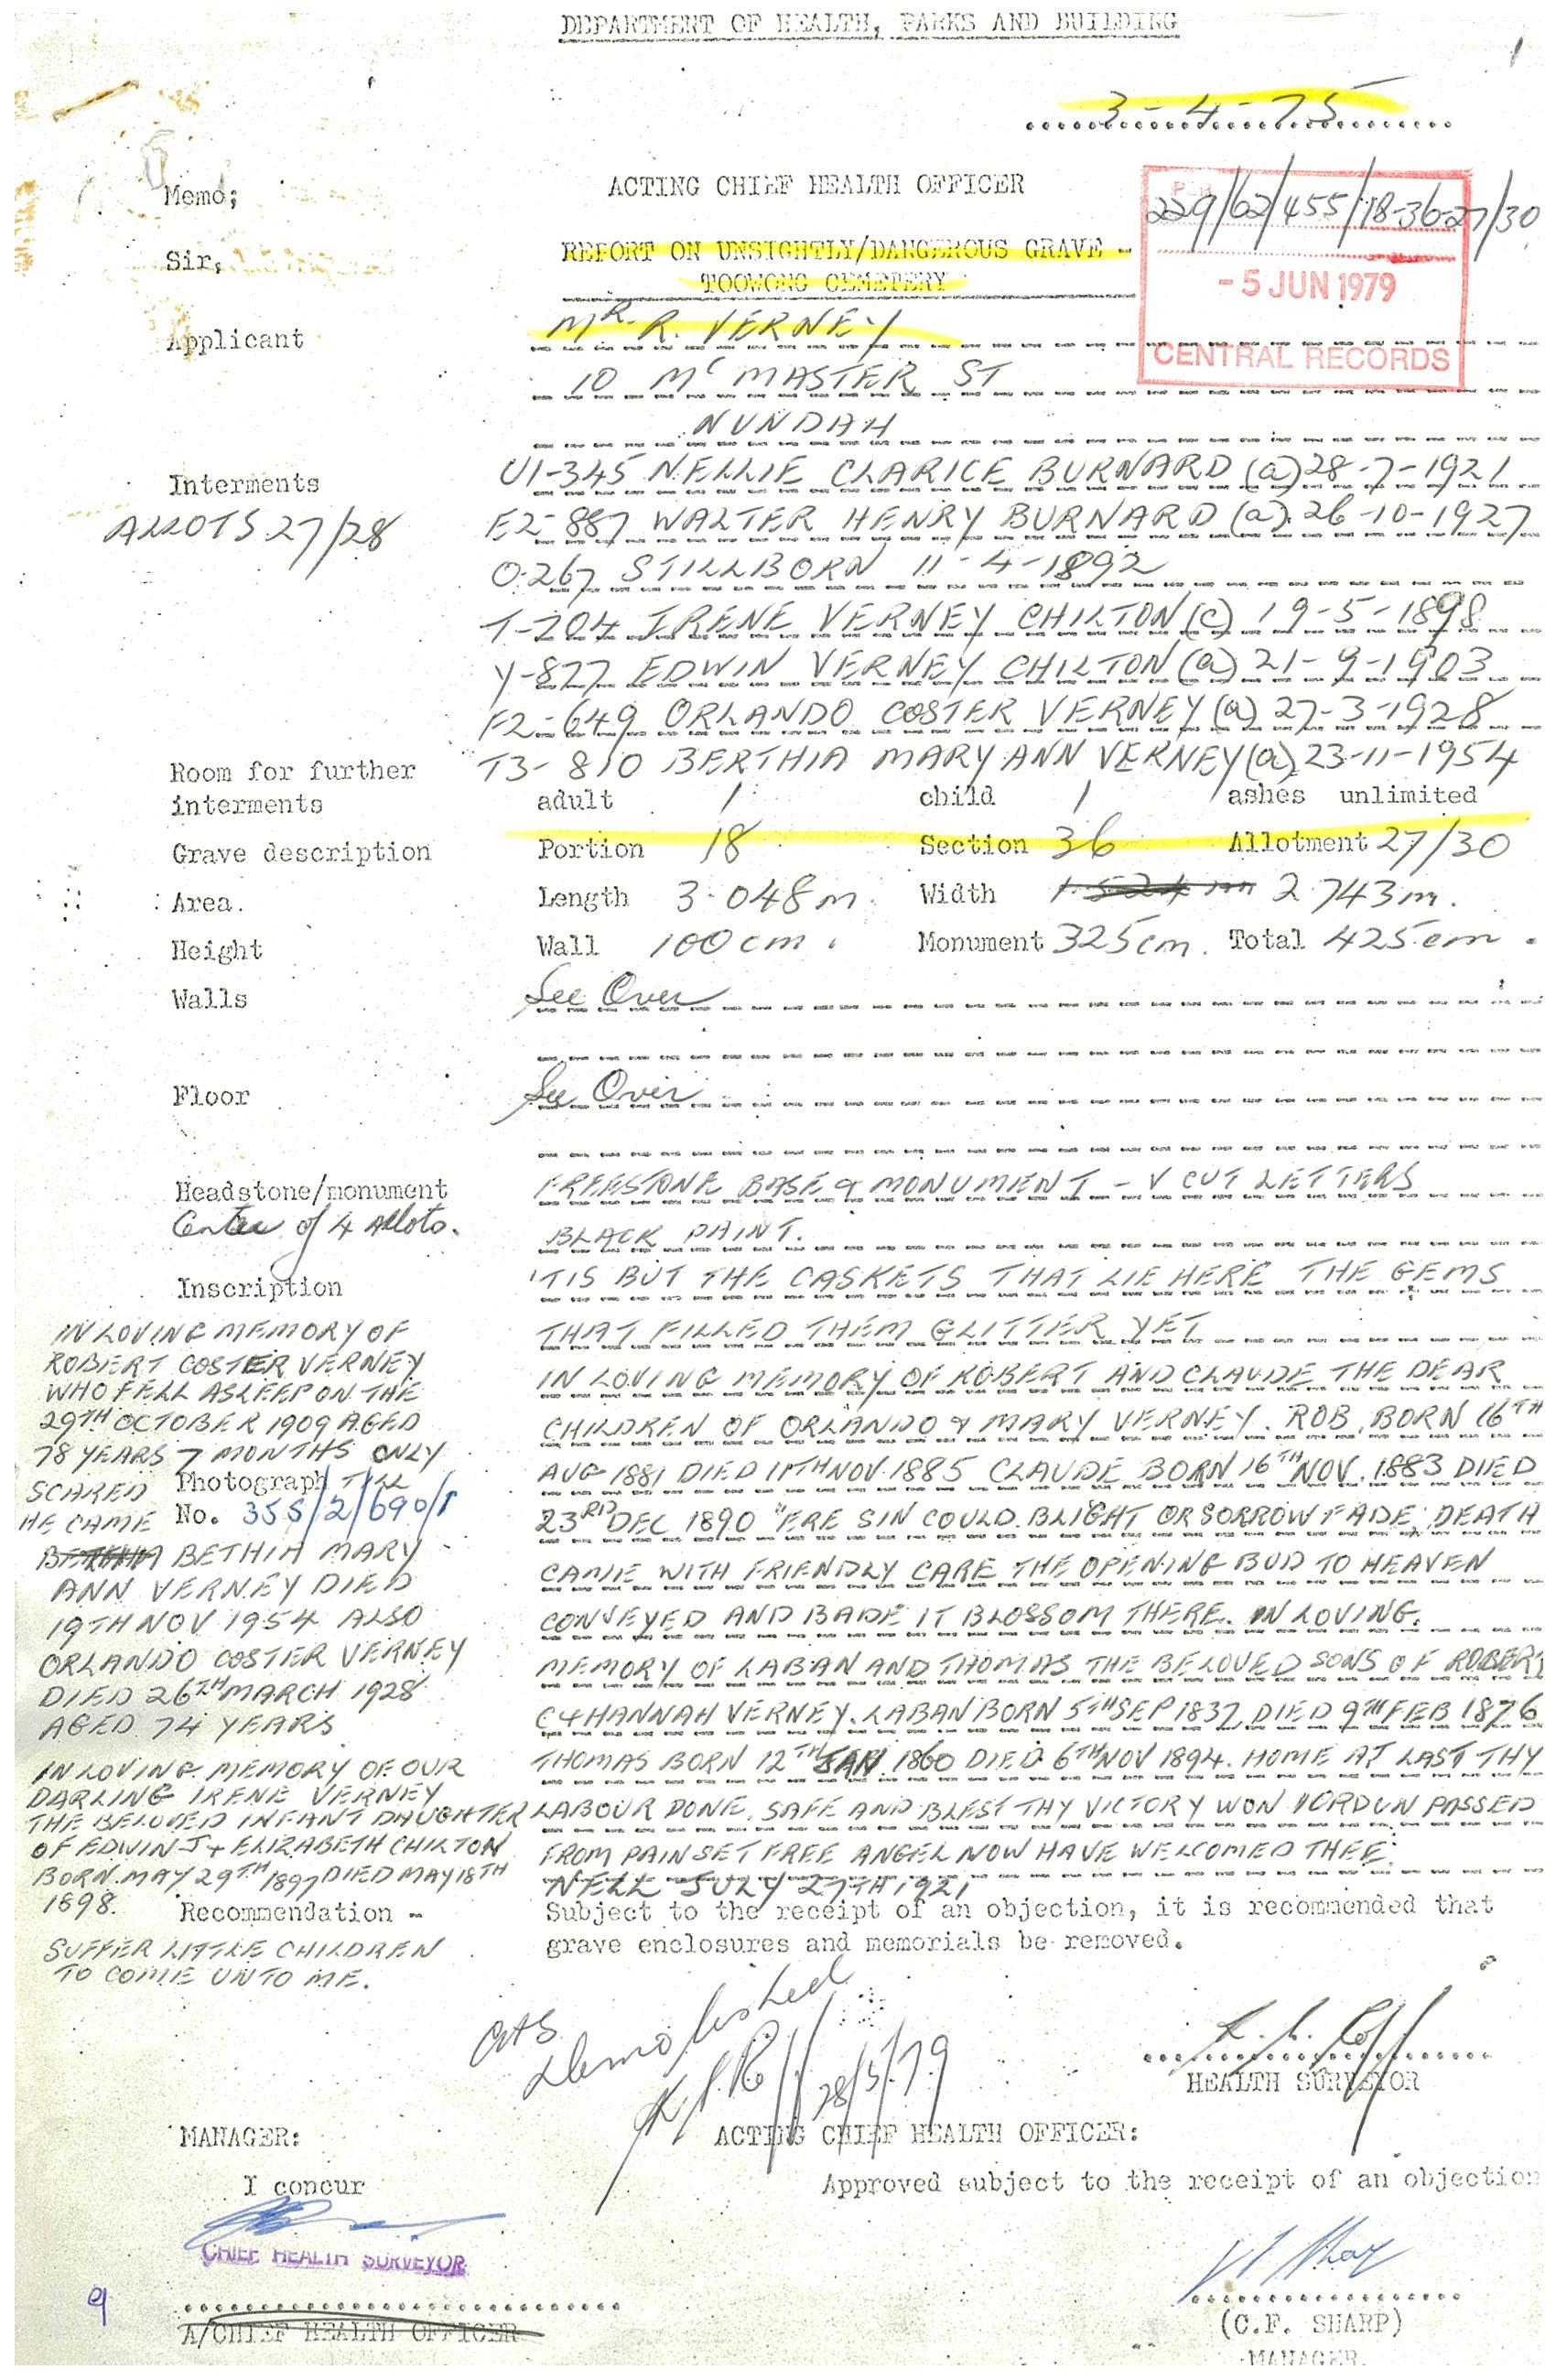 DEPARTMENT OF HEALTH, PARKS AND BUILDING
1
3-4-75
Memo;
ACTING CHIEF HEALTH OFFICER
229/62/455/18-36-27/30
Sir,
REPORT ON UNSIGHTLY/DANGEROUS GRAVE -
TOOWONG CEMETERY
- 5 JUN 1979
CENTRAL RECORDS
Applicant
MR. R. VERNEY
10 Mc MASTER ST
NUNDAH
Interments
ALLOTS 27/28
U1-345 NELLIE CLARICE BURNARD (a) 28-7-1921
E2-887 WALTER HENRY BURNARD (a) 26-10-1927
O-267 STILLBORN 11-4-1892
T-204 IRENE VERNEY CHILTON (c) 19-5-1898
Y-877 EDWIN VERNEY CHILTON (a) 21-9-1903
F2-649 ORLANDO COSTER VERNEY (a) 27-3-1928
T3-810 BERTHIA MARY ANN VERNEY (a) 23-11-1954
Room for further interments
adult 1 child 1 ashes unlimited
Grave description Portion 18 Section 36 Allotment 27/30
Area. Length 3.048m. Width 1.524 m 2.743m.
Height Wall 100cm. Monument 325cm. Total 425cm.
Walls See Over
Floor See Over
Headstone/monument
Center of 4 Allots.
FREESTONE BASE & MONUMENT - V CUT LETTERS
BLACK PAINT.
Inscription
'TIS BUT THE CASKETS THAT LIE HERE THE GEMS
THAT FILLED THEM GLITTER YET
IN LOVING MEMORY OF ROBERT AND CLAUDE THE DEAR
CHILDREN OF ORLANDO & MARY VERNEY. ROB BORN 16TH
AUG 1881 DIED 11TH NOV. 1885 CLAUDE BORN 16TH NOV. 1883 DIED
23RD DEC 1890 "ERE SIN COULD BLIGHT OR SORROW FADE DEATH
CAME WITH FRIENDLY CARE THE OPENING BUD TO HEAVEN
CONVEYED AND BADE IT BLOSSOM THERE. IN LOVING.
MEMORY OF LABAN AND THOMAS THE BELOVED SONS OF ROBERT
C & HANNAH VERNEY. LABAN BORN 5TH SEP 1837 DIED 9TH FEB 1876
THOMAS BORN 12TH JAN 1860 DIED 6TH NOV 1894. HOME AT LAST THY
LABOUR DONE. SAFE AND BLEST THY VICTORY WON PASSED
FROM PAIN SET FREE ANGEL NOW HAVE WELCOMED THEE.
NELL JULY 27TH 1921
IN LOVING MEMORY OF
ROBERT COSTER VERNEY
WHO FELL ASLEEP ON THE
29TH OCTOBER 1909 AGED
78 YEARS 7 MONTHS ONLY
SCARED TILL
HE CAME
Photograph
No. 355/2/690/1
BETHIA BETHIA MARY
ANN VERNEY DIED
19TH NOV 1954 ALSO
ORLANDO COSTER VERNEY
DIED 26TH MARCH 1928
AGED 74 YEARS
IN LOVING MEMORY OF OUR
DARLING IRENE VERNEY
THE BELOVED INFANT DAUGHTER
OF EDWIN J + ELIZABETH CHILTON
BORN MAY 29TH 1897 DIED MAY 18TH
1898.
SUFFER LITTLE CHILDREN
TO COME UNTO ME.
Recommendation -
Subject to the receipt of an objection, it is recommended that
grave enclosures and memorials be removed.
Demolished
28/5/79
HEALTH SURVEYOR
MANAGER:
ACTING CHIEF HEALTH OFFICER:
I concur
Approved subject to the receipt of an objection
CHIEF HEALTH SURVEYOR
9
A/CHIEF HEALTH OFFICER
(C.F. SHARP)
MANAGER.